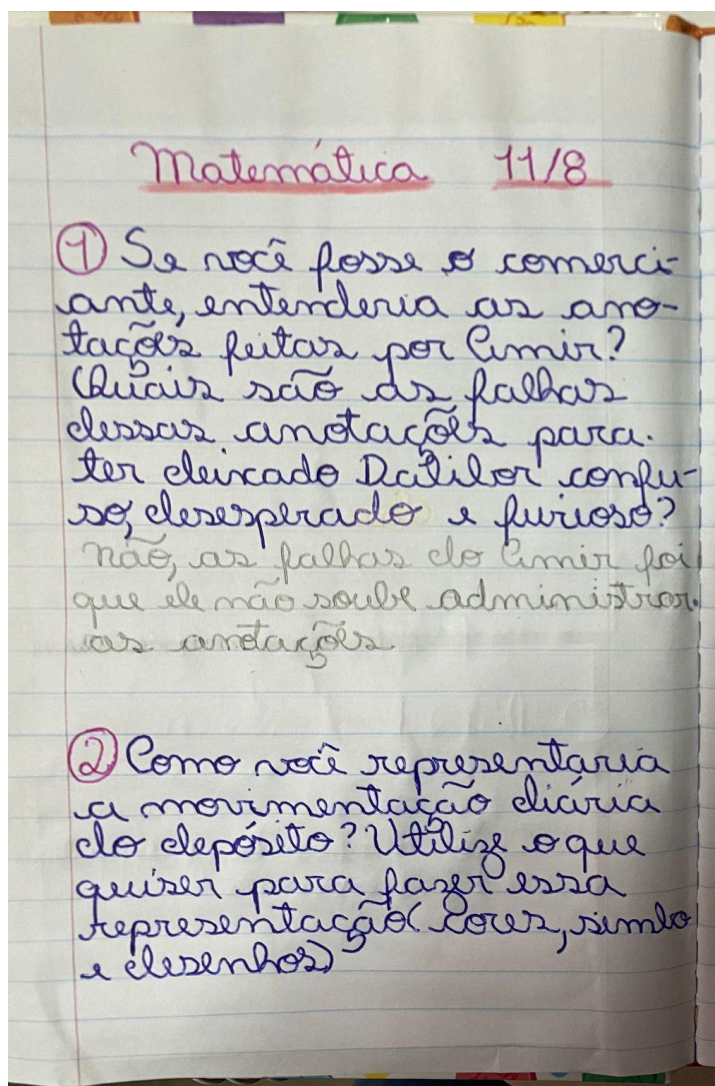 Matemática 11/8
① Se você fosse o comerci-
ante, entenderia as ano-
tações feitas por Amir?
Quais são as falhas
dessas anotações para
ter deixado Datilor confu-
so, desesperado e furioso?
não, as falhas do Amir foi
que ele não soube administrar
as anotações
② Como você representaria
a movimentação diária
do depósito? Utilize o que
quiser para fazer essa
representação (cores, simbo
e desenhos)